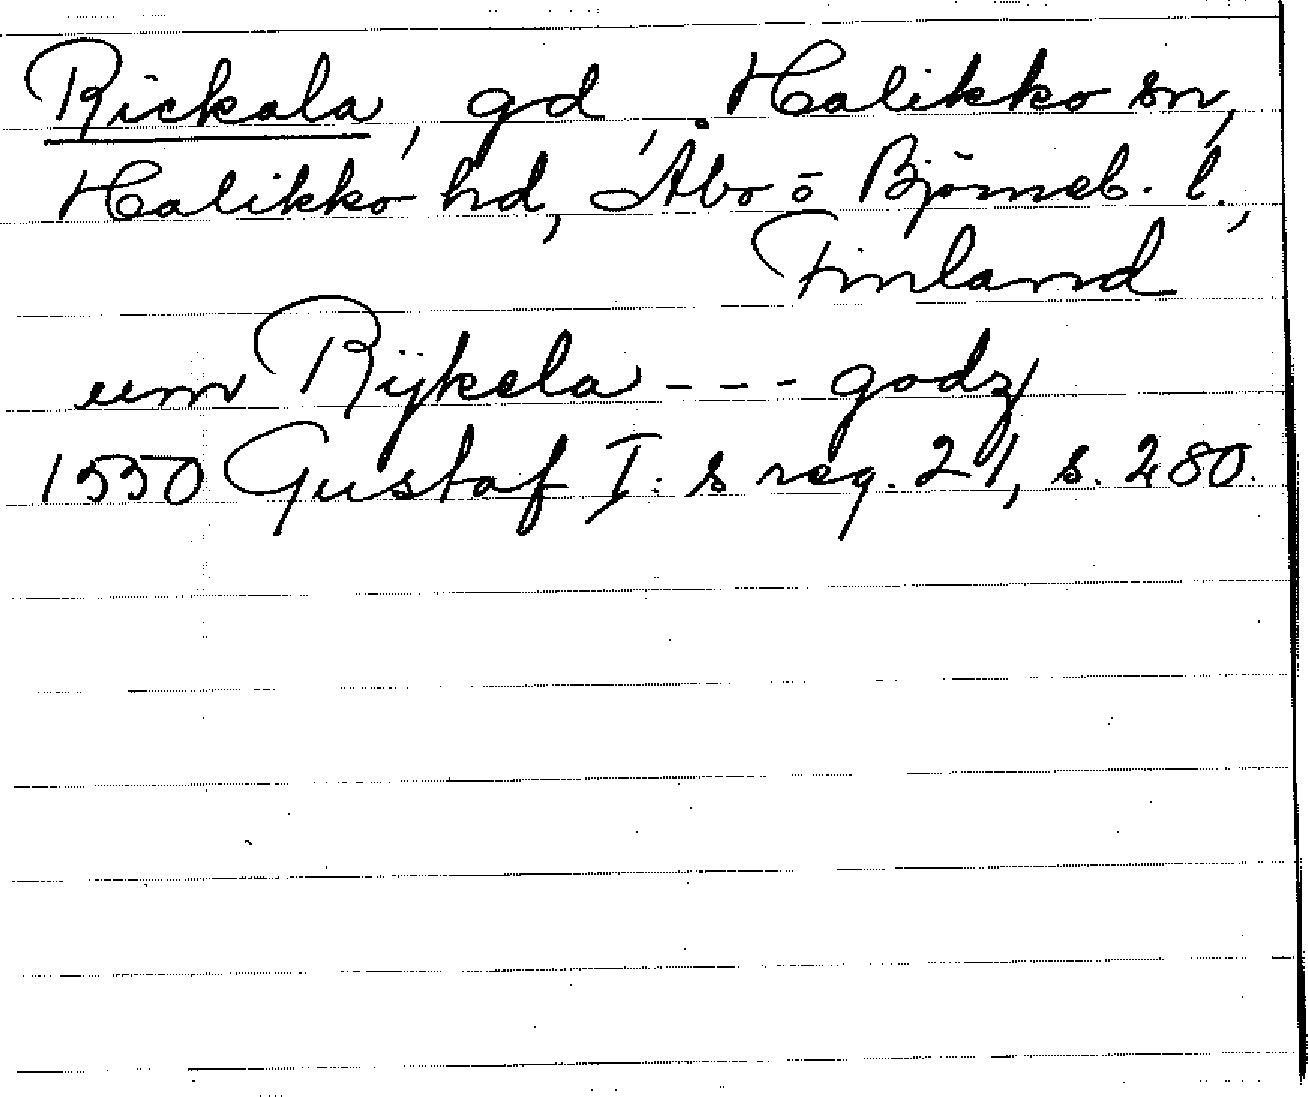 Rickala, gd, Halikko sn,
Halikko hd, Åbo ō Björneb. l.,
Finland
um Rijkela - - - godz
1550 Gustaf I:s reg. 21, s. 280.